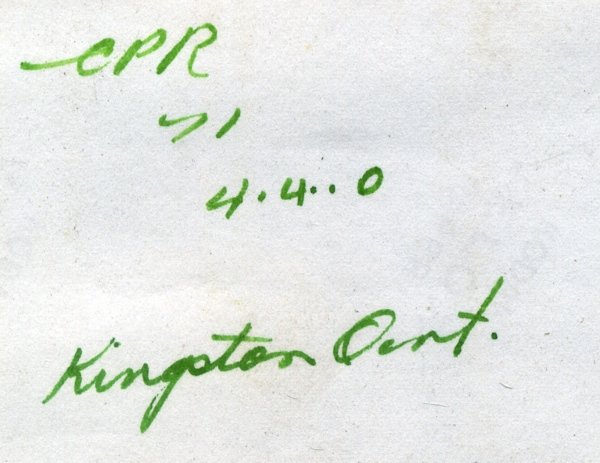 CPR
71
4.4..0
Kingston Ont.